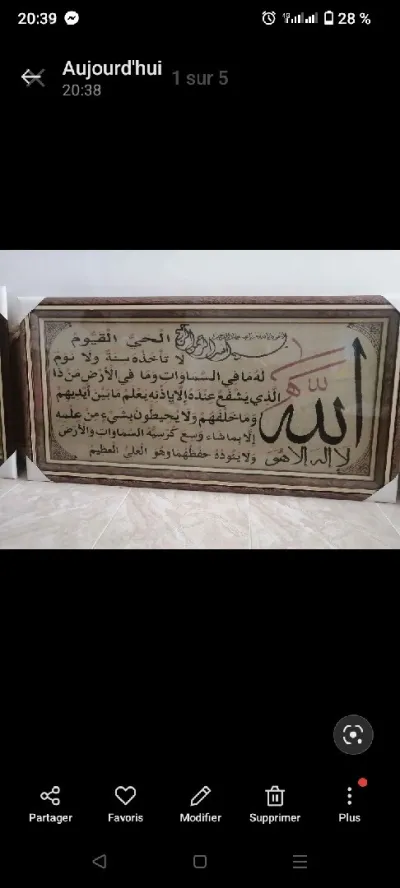 20:39
28 %
Aujourd'hui
1 sur 5
20:38
بسم الله الرحمن الرحيم
الله
لا إله إلا هو
الحي القيوم
لا تأخذه سنة ولا نوم
له ما في السماوات وما في الأرض من ذا
الذي يشفع عنده إلا بإذنه يعلم ما بين أيديهم
وما خلفهم ولا يحيطون بشيء من علمه
إلا بما شاء وسع كرسيه السماوات والأرض
ولا يئوده حفظهما وهو العلي العظيم
Partager
Favoris
Modifier
Supprimer
Plus